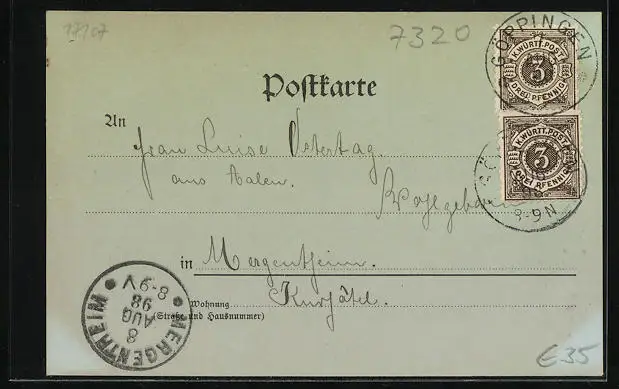 17107
7320
GÖPPINGEN
K.WÜRTT.POST
3
DREI PFENNIG
K.WÜRTT.POST
3
DREI PFENNIG
8-9N
Postkarte
An
Frau Luise Ostertag
aus Aalen.
Wohlgeboren
in Mergentheim.
Kurhôtel.
Wohnung
(Straße und Hausnummer)
MERGENTHEIM
8
AUG
98
8-9V
€35